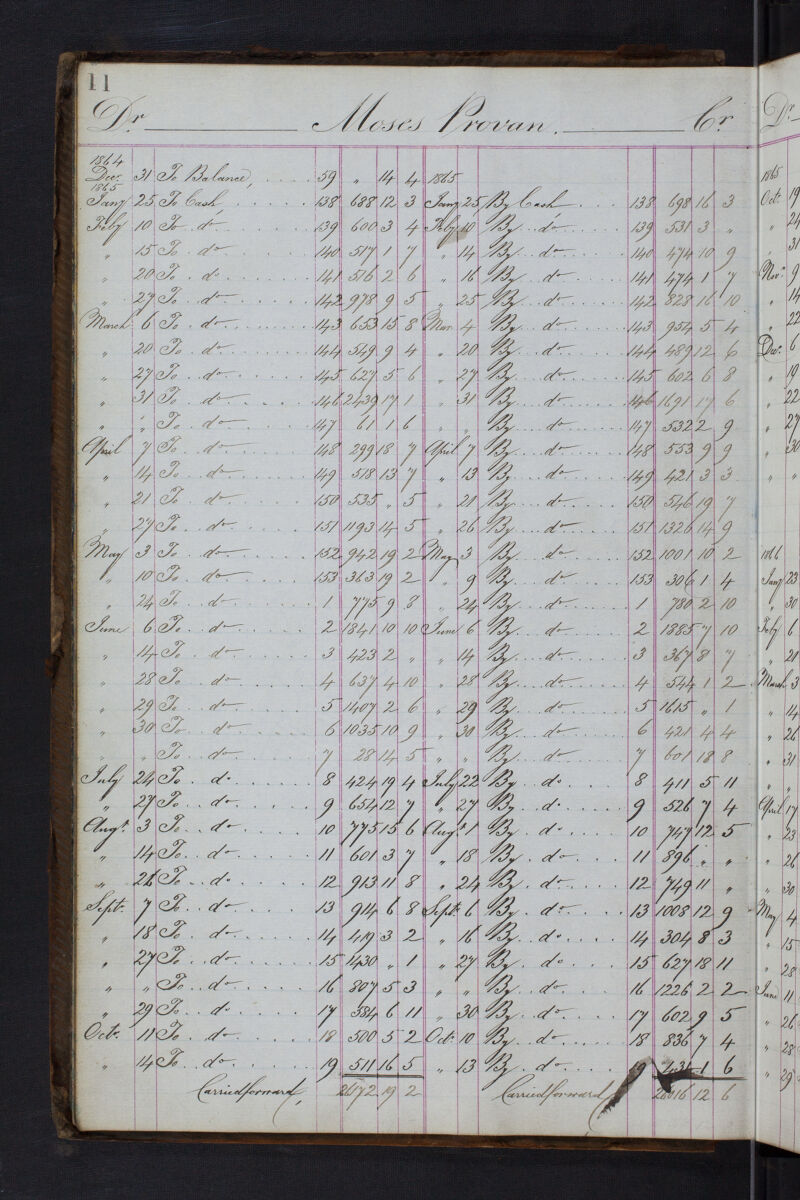 11
Dr. Moses Provan. Cr.
1864
Decr. 31 To Balance, 59 " 14 4 1865
1865
Jany 25 To Cash 138 688 12 3 Jany 25 By Cash 138 698 16 3
Feby 10 To do 139 600 3 4 Feby 10 By do 139 531 3 "
" 15 To do 140 517 1 7 " 14 By do 140 474 10 9
" 20 To do 141 516 2 6 " 16 By do 141 474 1 7
" 27 To do 142 978 9 5 " 25 By do 142 828 16 10
March 6 To do 143 653 15 8 Mar. 4 By do 143 954 5 4
" 20 To do 144 549 9 4 " 20 By do 144 489 12 6
" 27 To do 145 627 5 6 " 27 By do 145 602 6 8
" 31 To do 146 2439 17 1 " 31 By do 146 1691 17 6
" " To do 147 61 1 6 " " By do 147 532 2 9
April 7 To do 148 299 18 7 April 7 By do 148 553 9 9
" 14 To do 149 518 13 7 " 13 By do 149 421 3 3
" 21 To do 150 535 " 5 " 21 By do 150 546 19 7
" 27 To do 151 1193 14 5 " 26 By do 151 1326 14 9
May 3 To do 152 942 19 2 May 3 By do 152 1001 10 2
" 10 To do 153 363 19 2 " 9 By do 153 306 1 4
" 24 To do 1 775 9 8 " 24 By do 1 780 2 10
June 6 To do 2 1841 10 10 June 6 By do 2 1885 7 10
" 14 To do 3 423 2 " " 14 By do 3 367 8 7
" 28 To do 4 637 4 10 " 28 By do 4 544 1 2
" 29 To do 5 1407 2 6 " 29 By do 5 1615 " 1
" 30 To do 6 1035 10 9 " 30 By do 6 421 4 4
" " To do 7 28 14 5 " " By do 7 601 18 8
July 24 To do 8 424 19 4 July 22 By do 8 411 5 11
" 27 To do 9 654 12 7 " 27 By do 9 526 7 4
Augt. 3 To do 10 775 15 6 Augt. 1 By do 10 747 12 5
" 14 To do 11 601 3 7 " 18 By do 11 896 " "
" 26 To do 12 913 11 8 " 24 By do 12 749 11 "
Sept. 7 To do 13 914 6 8 Sept. 6 By do 13 1008 12 9
" 18 To do 14 419 3 2 " 16 By do 14 304 8 3
" 27 To do 15 1430 " 1 " 27 By do 15 627 18 11
" " To do 16 807 5 3 " " By do 16 1226 2 2
" 29 To do 17 584 6 11 " 30 By do 17 602 9 5
Oct. 11 To do 18 500 5 2 Oct. 10 By do 18 836 7 4
" 14 To do 19 511 16 5 " 13 By do 19 1 6
Carried forward, 2672 19 2 Carried forward 16 12 6
Dr.
1865
Oct. 19
" 24
" 31
Novr. 9
" 14
" 22
Decr. 6
" 19
" 22
" 27
" 30
" "
1866
Jany 23
" 30
Feby 6
" 21
March 3
" 14
" 26
" 31
" "
April 17
" 23
" 26
" 30
May 4
" 15
" 28
June 11
" 26
" 28
" 29